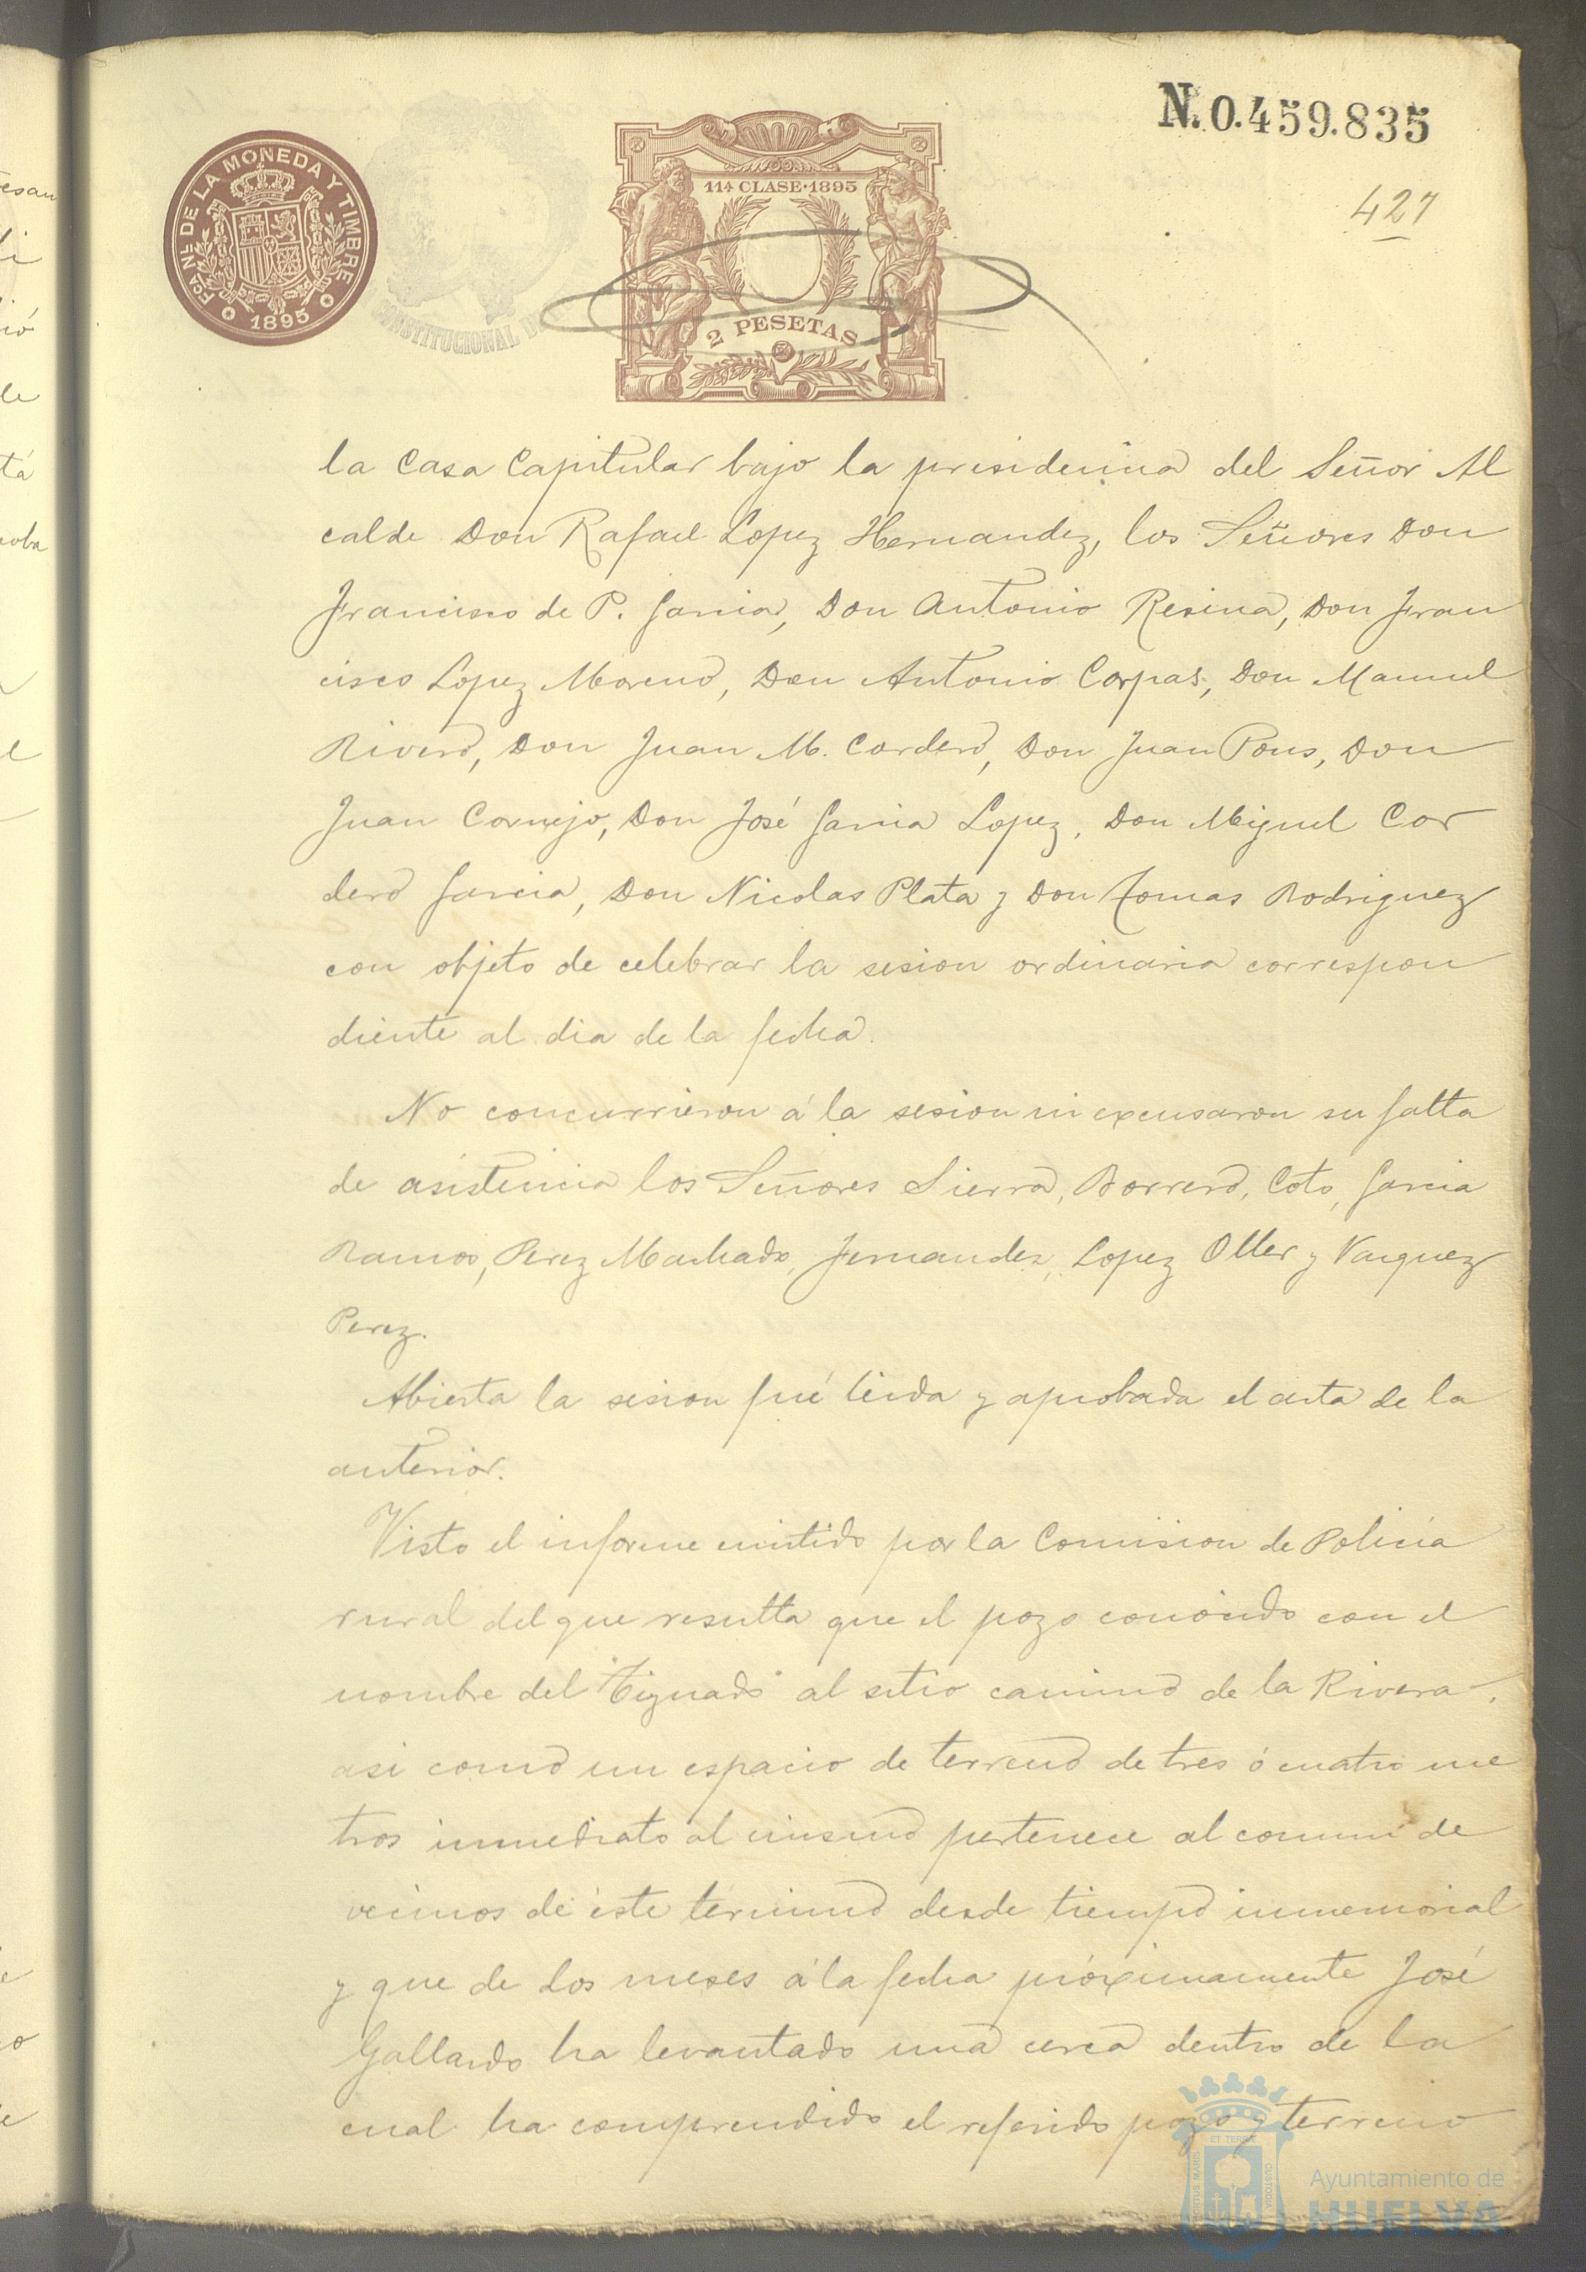 N. 0.459.835
427
FCA. NL. DE LA MONEDA Y TIMBRE
1895
CONSTITUCIONAL DE
11ª CLASE·1895
2 PESETAS
la Casa Capitular bajo la presidencia del Señor Al
calde Don Rafael Lopez Hernandez, los Señores Don
Francisco de P. Garcia, Don Antonio Resina, Don Fran
cisco Lopez Moreno, Don Antonio Corpas, Don Manuel
Rivero, Don Juan M. Cordero, Don Juan Pons, Don
Juan Cornejo, Don José Garcia Lopez, Don Miguel Cor
dero Garcia, Don Nicolas Plata y Don Tomas Rodriguez
con objeto de celebrar la sesion ordinaria correspon
diente al dia de la fecha.
No concurrieron á la sesion ni excusaron su falta
de asistencia los Señores Sierra, Borrero, Coto, Garcia
Ramos, Perez Machado, Fernandez, Lopez Oller y Vazquez
Perez.
Abierta la sesion fué leida y aprobada el acta de la
anterior.
Visto el informe emitido por la Comision de Policía
rural del que resulta que el pozo conocido con el
nombre del "Tignado" al sitio camino de la Rivera,
asi como un espacio de terreno de tres ó cuatro me
tros inmediato al mismo pertenece al comun de
vecinos de éste término desde tiempo inmemorial
y que de dos meses á la fecha próximamente José
Gallardo ha levantado una cerca dentro de la
cual ha comprendido el referido pozo y terreno
Ayuntamiento de
HUELVA